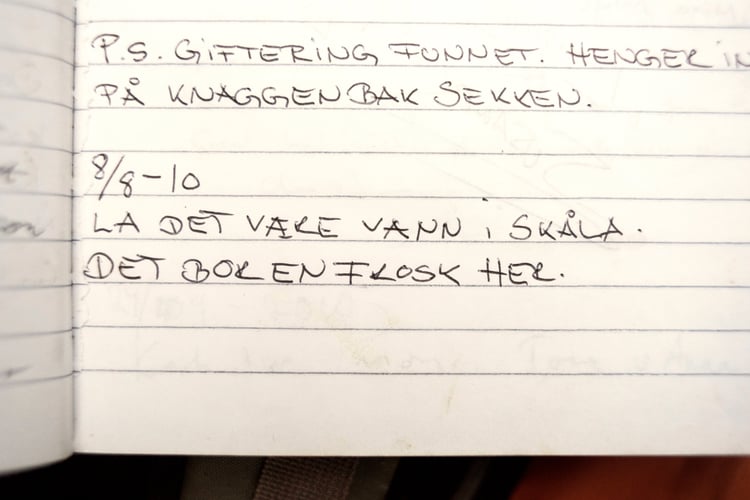 P.S. GIFTERING FUNNET. HENGER IN
PÅ KNAGGEN BAK SEKKEN.
8/8-10
LA DET VÆRE VANN i SKÅLA.
DET BOR EN FROSK HER.